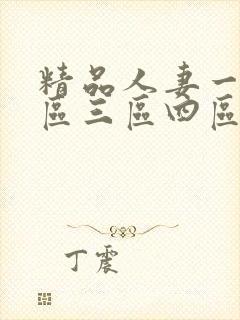 精品人妻一
區三區四區
丁震